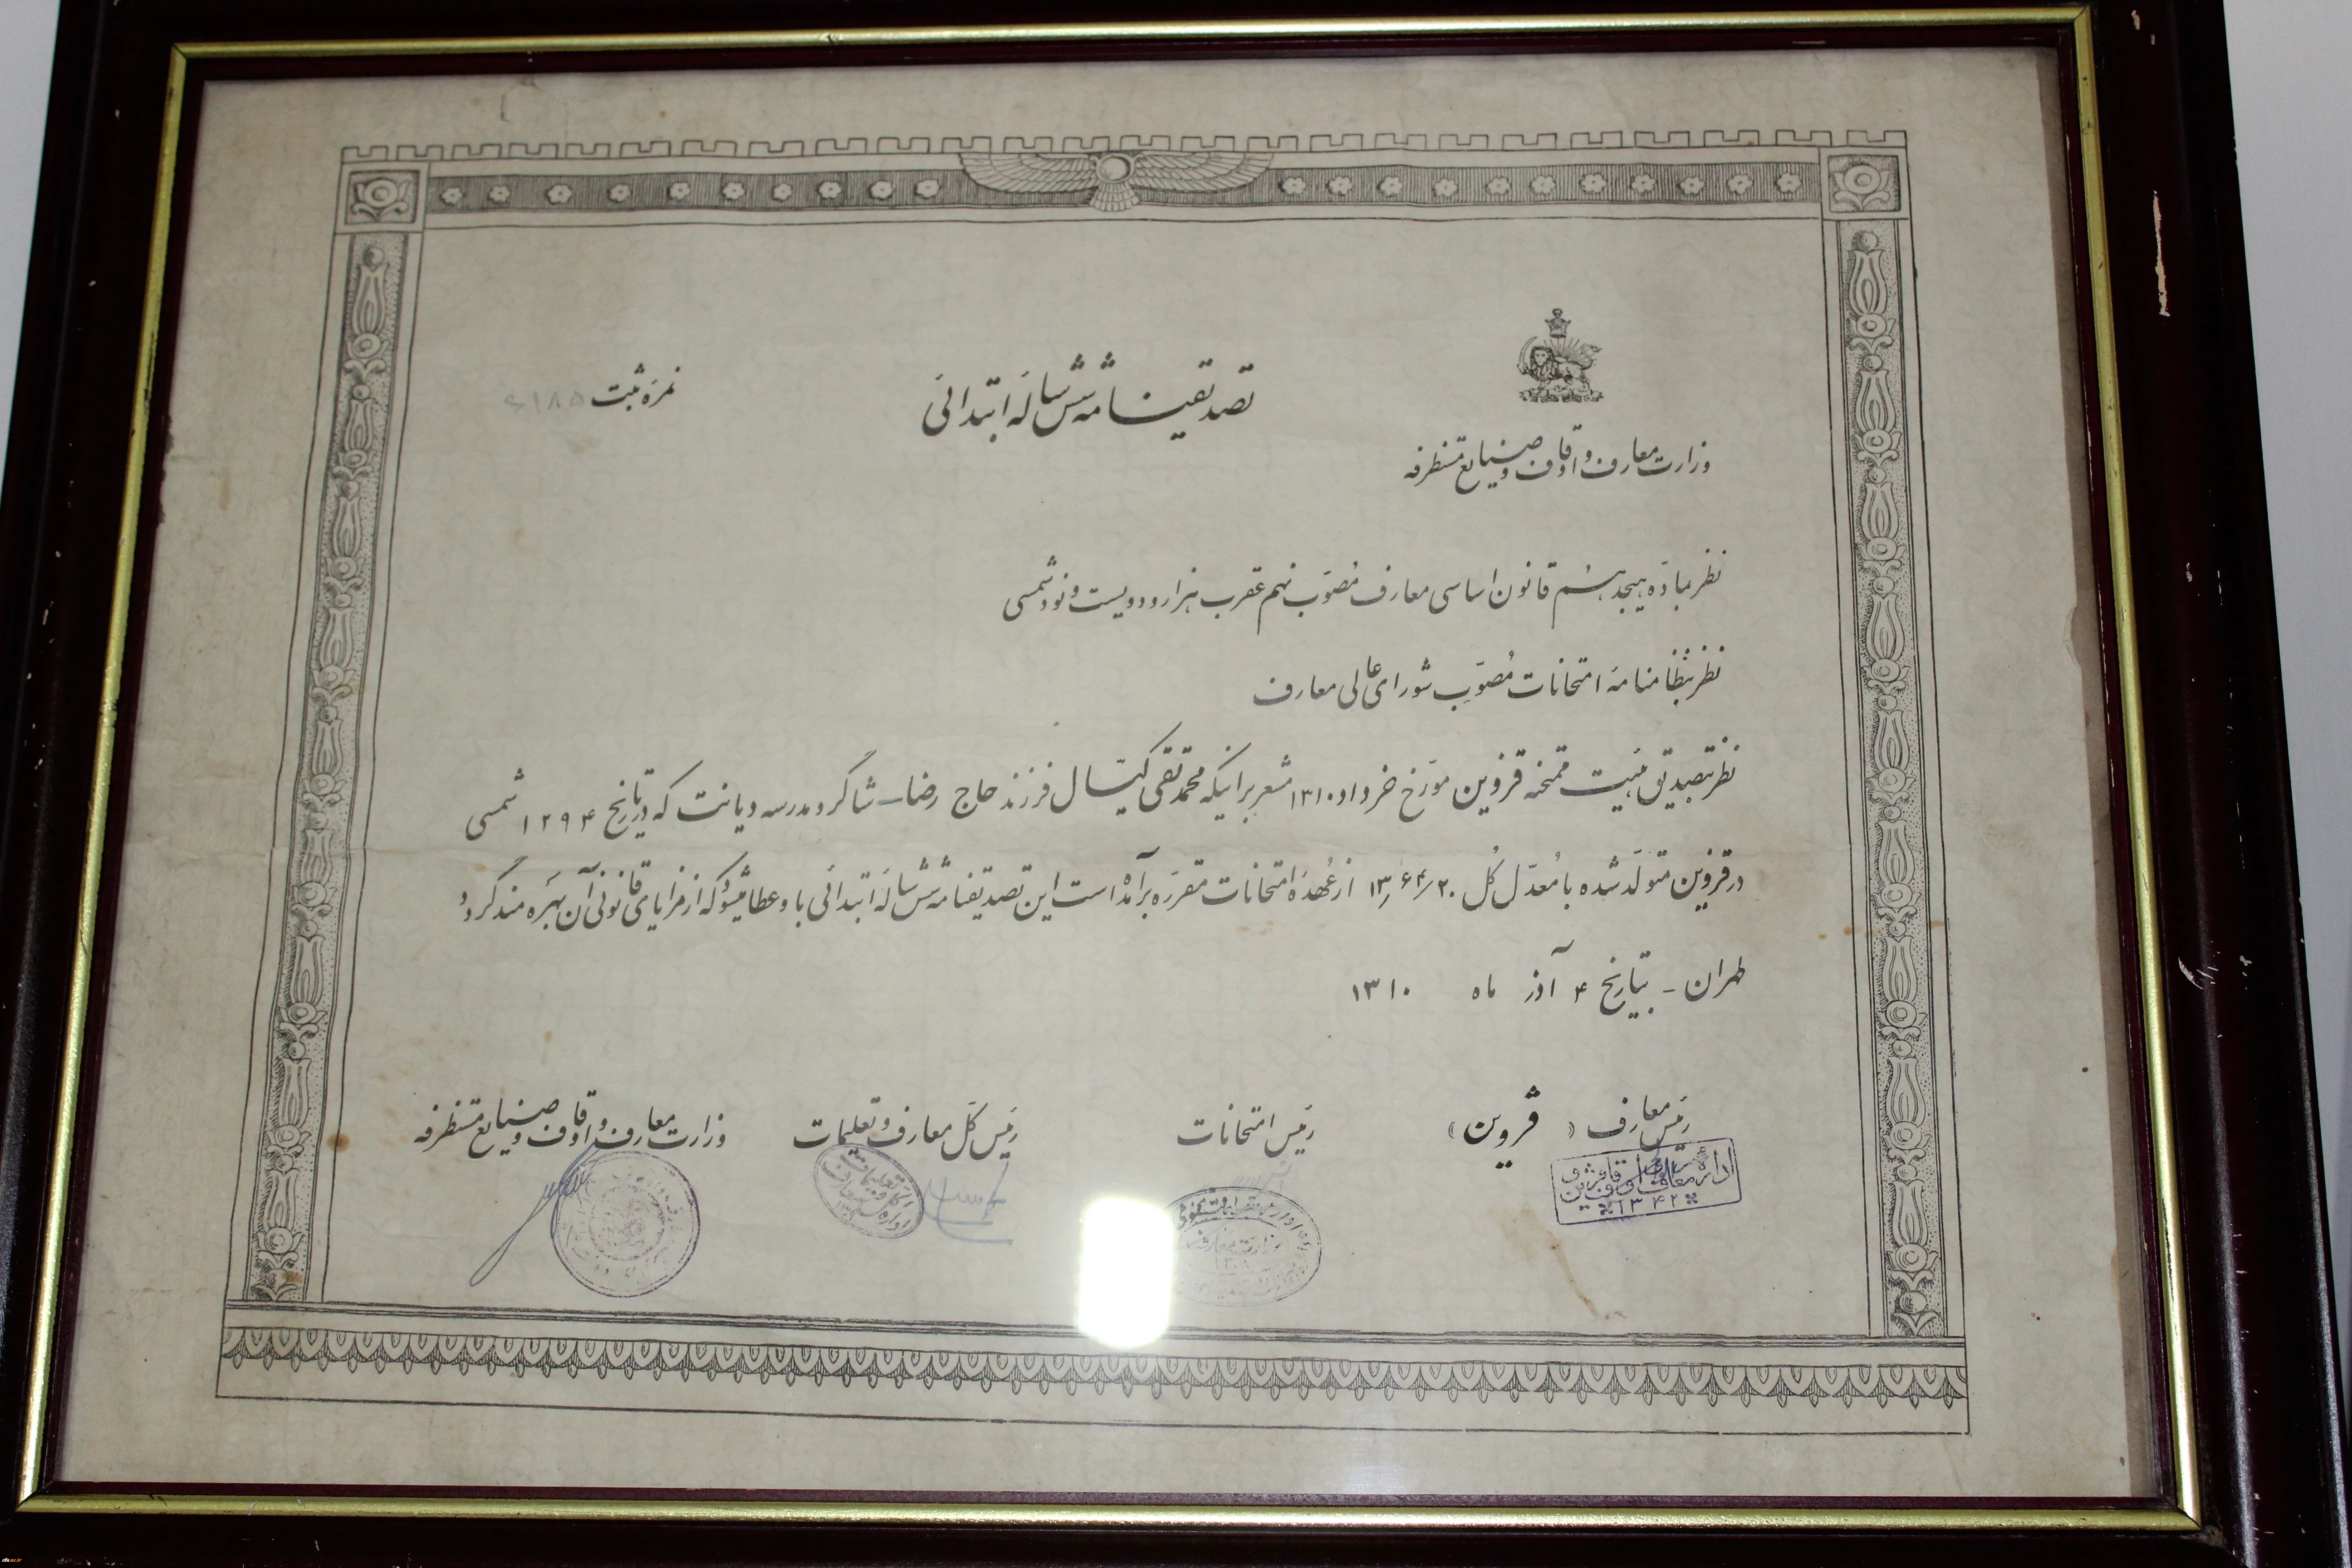 وزارت معارف و اوقاف و صنایع مستظرفه
تصدیقنامه شش ساله ابتدائی
نمره ثبت
نظر بمادّه هیجدهم قانون اساسی معارف مُصوّب نهم عقرب هزار و دویست و نود شمسی
نظر بنظامنامه امتحانات مُصوّب شورای عالی معارف
نظر بتصدیق هیئت ممتحنه قزوین مورّخ خرداد ۱۳۱۰ مشعر بر اینکه محمد تقی کیّال فرزند حاج رضا شاگرد مدرسه دیانت که در تاریخ ۱۲۹۴ شمسی
در قزوین متولّد شده با مُعدّل کُل ۱۳٫۶۴/۲۰ از عُهده امتحانات مقرّره برآمده است این تصدیقنامه شش ساله ابتدائی باو عطا میشود که از مزایای قانونی آن بهره مند گردد
طهران - بتاریخ ۴ آذر ماه ۱۳۱۰
رئیس معارف ( قزوین )
رئیس امتحانات
رئیس کل معارف و تعلیمات
وزارت معارف و اوقاف و صنایع مستظرفه
اداره معارف و اوقاف قزوین
۱۳۴۲